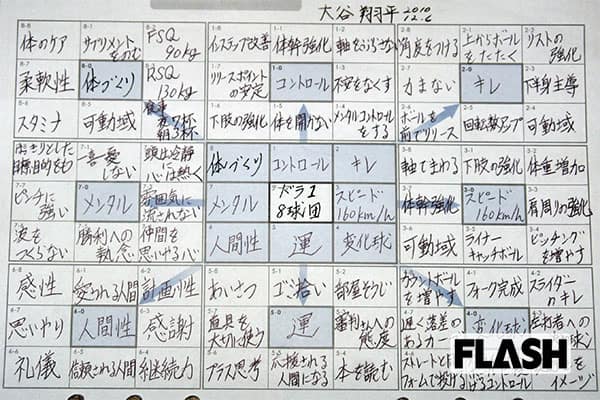 大谷 翔平 2010 12.6
体のケア
サプリメントをのむ
FSQ 90kg
インステップ改善
体幹強化
軸をぶらさない
角度をつける
上からボールをたたく
リストの強化
柔軟性
体づくり
RSQ 130kg
リリースポイントの安定
コントロール
不安をなくす
力まない
キレ
下半身主導
スタミナ
可動域
食事 夜7杯 朝3杯
下肢の強化
体を開かない
メンタルコントロールをする
ボールを前でリリース
回転数アップ
可動域
はっきりとした目標、目的をもつ
一喜一憂しない
頭は冷静に心は熱く
体づくり
コントロール
キレ
軸でまわる
下肢の強化
体重増加
ピンチに強い
メンタル
雰囲気に流されない
メンタル
ドラ1 8球団
スピード 160km/h
体幹強化
スピード 160km/h
肩周りの強化
波をつくらない
勝利への執念
仲間を思いやる心
人間性
運
変化球
可動域
ライナーキャッチボール
ピッチングを増やす
感性
愛される人間
計画性
あいさつ
ゴミ拾い
部屋そうじ
カウントボールを増やす
フォーク完成
スライダーのキレ
思いやり
人間性
感謝
道具を大切に使う
運
審判さんへの態度
遅く落差のあるカーブ
変化球
礼儀
信頼される人間
継続力
プラス思考
応援される人間になる
本を読む
FLASH